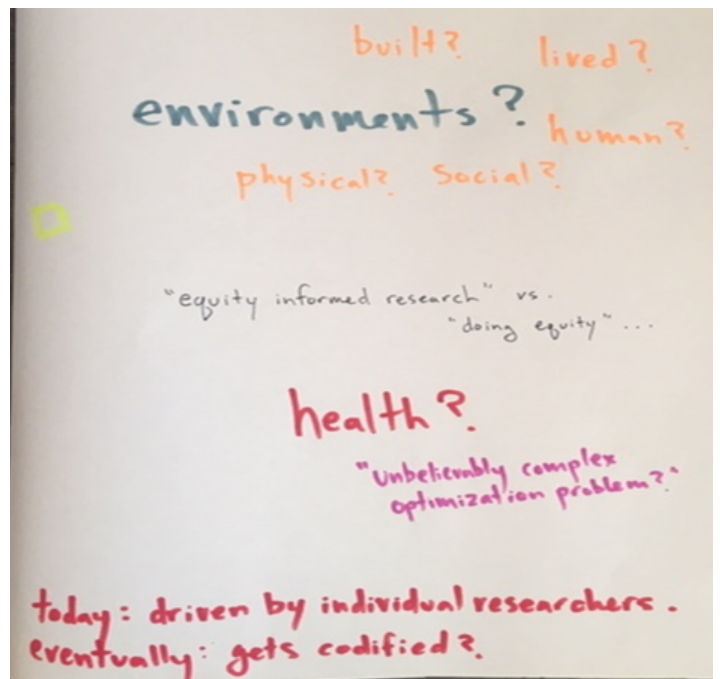 built? lived?
environments?
human?
physical? social?
"equity informed research" vs.
"doing equity"...
health?
"unbelievably complex
optimization problem?"
today: driven by individual researchers.
eventually: gets codified?